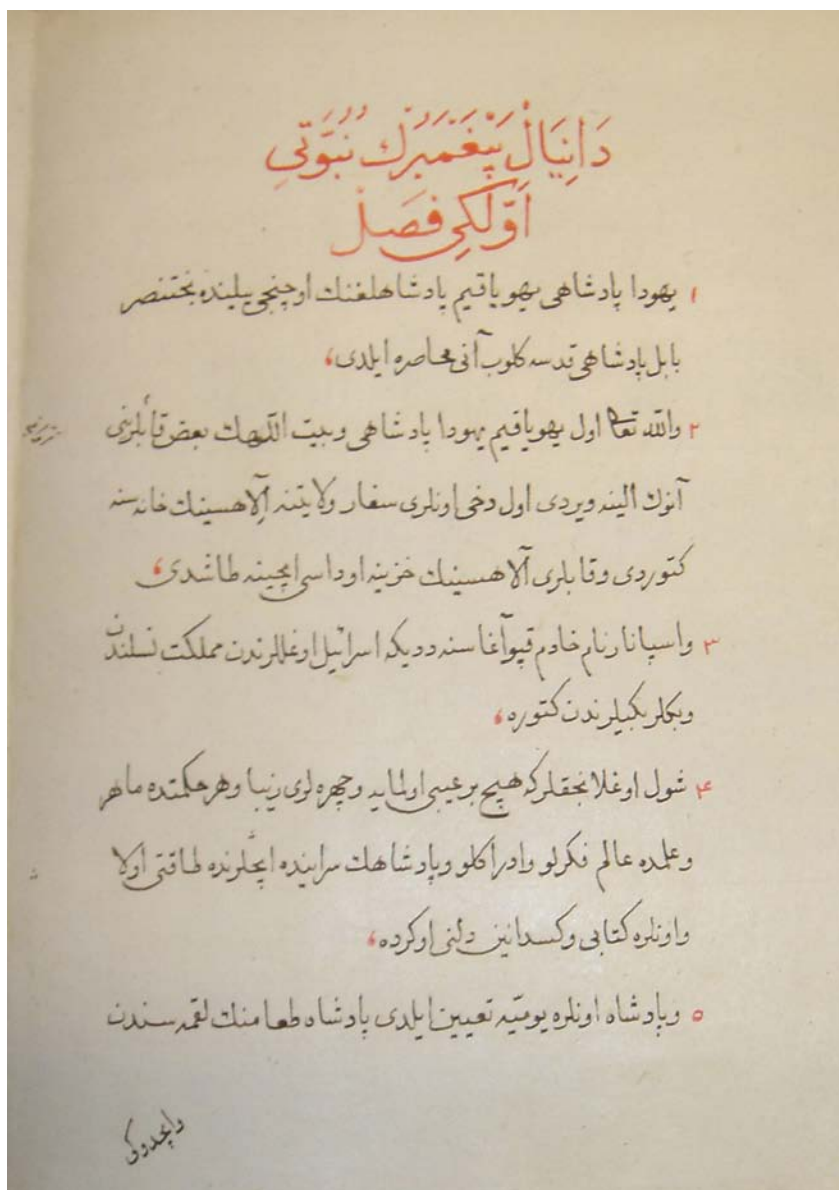 دَانِيَالْ پَيْغَمْبَرِكْ نُبُوَّتِي
اَوَّلْكِي فَصِلْ
١ يهودا پادشاهی يهوياقيم پادشاهلغنك اوچنجی ييلنده بختنصر
بابل پادشاهی قدسه كلوب آنی محاصره ايلدی،
٢ والله تعا اول يهوياقيم يهودا پادشاهی وبيت اللهك بعض قابلرينی
آنوك الينه ويردی اول دخی اونلری سنغار ولايتنه آلاهسينك خانه سنه
كتوردی وقابلری آلاهسينك خزينه اوداسی ايچينه طاشدی،
٣ واسپاناز نام خادم قپوآغا سنه دديكه اسرائيل اوغللرندن مملكت نسلندن
وبكلربكيلرندن كتوره،
۴ شول اوغلانجقلركه هيچ بر عيبی اولمايه وچهره لری زيبا وهر حكمتده ماهر
وعلمده عالم فكرلو وادراكلو وپادشاهك سراينده ايچلرنده طاقتی اولا
واونلره كتابی وكسدانين دلنی اوكرده،
۵ وپادشاه اونلره يوميّه تعيين ايلدی پادشاه طعامنك لقمه سندن
وايچدوكی